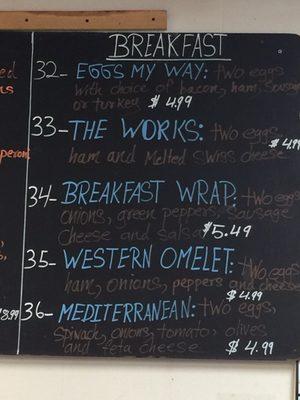 BREAKFAST
32- EGGS MY WAY: two eggs
with choice of bacon, ham, Sausage
or turkey $4.99
33- THE WORKS: two eggs,
ham and Melted Swiss cheese
$4.99
34- BREAKFAST WRAP: two eggs
onions, green peppers, sausage
cheese and salsa $5.49
35- WESTERN OMELET: two eggs
ham, onions, peppers and cheese
$4.99
36- MEDITERRANEAN: two eggs,
Spinach, onions, tomato, olives
and feta cheese $4.99